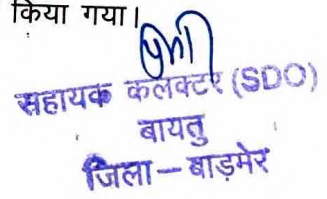 किया गया।
सहायक कलक्टर (SDO)
बायतु
जिला – बाड़मेर